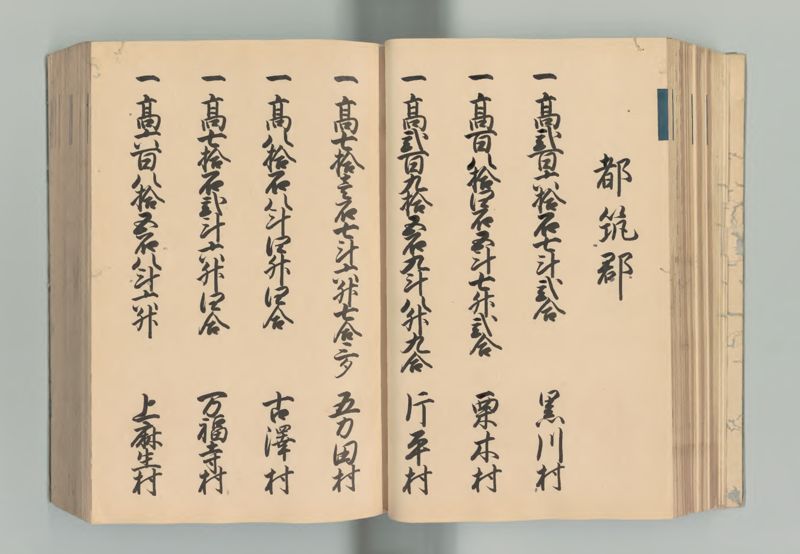 都筑郡
一 高弐百六拾石七斗弐合 黒川村
一 高百八拾四石五斗七升弐合 栗木村
一 高弐百九拾五石九斗八升九合 片平村
一 高七拾壱石七斗六升七合二夕 五力田村
一 高八拾石八斗四升四合 古澤村
一 高七拾石弐斗六升四合 万福寺村
一 高六百八拾五石八斗六升 上麻生村